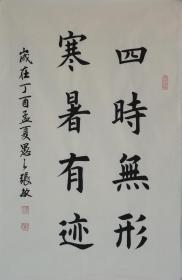 四時無形
寒暑有迹
歲在丁酉孟夏愚之張敏